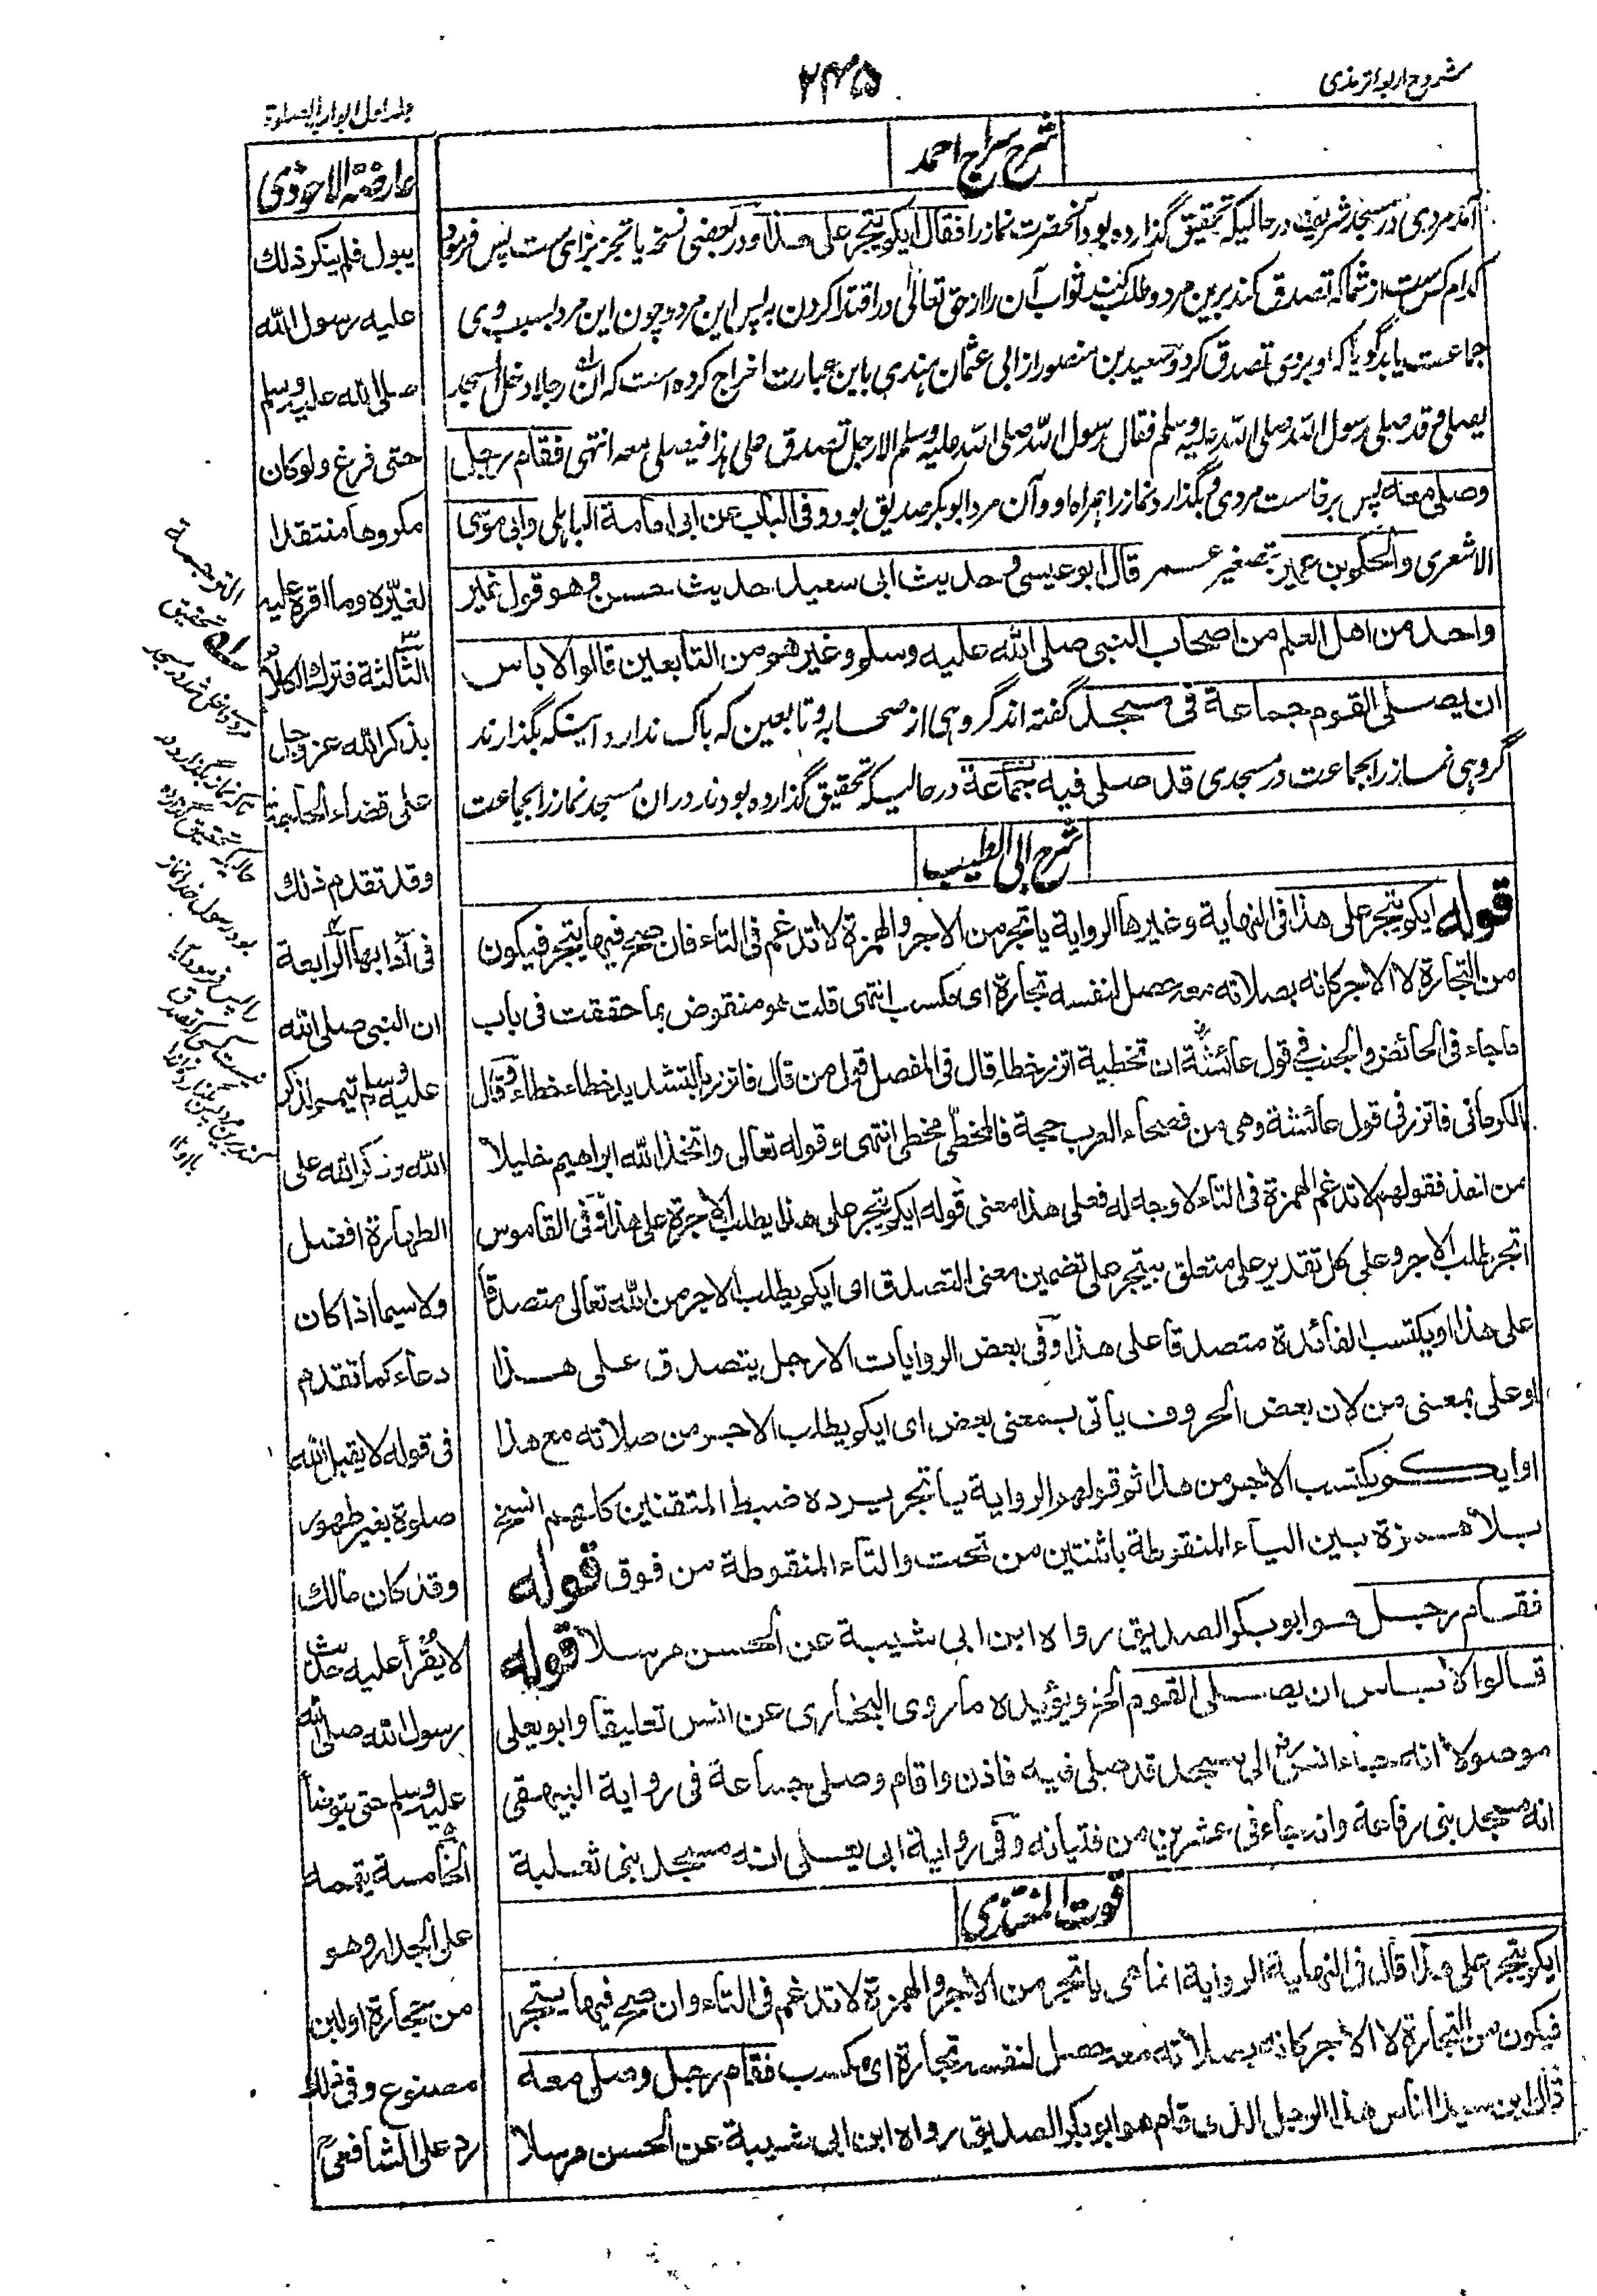 شروح اربعه ترمذی
۲۴۵
جلد اول ابواب الصلوة
شرح سراج احمد
آمد مردی در مسجد شریف در حالیکه تحقیق گذارده بود آنحضرت نماز را فقال ایکم یتجر علی هذا و در بعضی نسخه یاتجر بزای ست پس فرمود
کدام کس ست از شما که تصدق کند برین مرد و طلب کند ثواب آن را از حق تعالی در اقتدا کردن به پس این مرد و چون این مرد بسبب وی
جماعت یابد گویا که او بروی تصدق کرد و سعید بن منصور از ابی عثمان هندی باین عبارت اخراج کرده است که ان رجلا دخل المسجد
یصلی و قد صلی رسول الله صلی الله علیه وسلم فقال رسول الله صلی الله علیه وسلم الا رجل تصدق علی هذا فیصلی معه انتهی فقام رجل
وصلی معه پس برخاست مردی و بگذارد نماز را همراه او و آن مرد ابوبکر صدیق بود و فی الباب عن ابی امامة الباهلی وابی موسی
الاشعری والحکم بن عمیر بتصغیر عمر قال ابو عیسی و حدیث ابی سعید حدیث حسن و هو قول غیر
واحد من اهل العلم من اصحاب النبی صلی الله علیه وسلم وغیرهم من التابعین قالوا لا باس
ان یصلی القوم جماعة فی مسجد گفته اند گروهی از صحابه و تابعین که باک ندارد اینکه بگذارند
گروهی نماز را بجماعت در مسجدی قد صلی فیه جماعة در حالیکه تحقیق گذارده بودند در ان مسجد نماز را بجماعت
شرح ابی الطیب
قوله ایکم یتجر علی هذا فی النهایة وغیرها الروایة یاتجر من الاجر والهمزة لا تدغم فی التاء فان صح فیها یتجر فیکون
من التجارة لا الاجر کانه بصلاته معه حصل لنفسه تجارة ای مکسب انتهی قلت هو منقوض بما حققت فی باب
ماجاء فی الحائض والجنب فی قول عائشة ان تخطیة اتزر خطا قال فی المفصل قول من قال فاتزر بالتشدید خطاء خطاء وقال
الکرمانی فاتزر فی قول عائشة وهی من فصحاء العرب حجة فالمخطئ مخطی انتهی وقوله تعالی واتخذ الله ابراهیم خلیلا
من اخذ فقولهم لا تدغم الهمزة فی التاء لا وجه له فعلی هذا معنی قوله ایکم یتجر علی هذا یطلب الاجرة علی هذا وفی القاموس
اتجر طلب الاجر وعلی کل تقدیر علی متعلق بیتجر علی تضمین معنی التصدق ای ایکم یطلب الاجر من الله تعالی متصدقا
علی هذا او یکتسب الفائدة متصدقا علی هذا وفی بعض الروایات الا رجل یتصدق علی هذا
او علی بمعنی من لان بعض الحروف یاتی بمعنی بعض ای ایکم یطلب الاجر من صلاته مع هذا
او ایکم یکتسب الاجر من هذا ثم قولهم الروایة یاتجر یرده ضبط المتقنین کلهم النسخ
بلا همزة بین الیاء المنقوطة باثنتین من تحت والتاء المنقوطة من فوق قوله
فقام رجل هو ابو بکر الصدیق رواه ابن ابی شیبة عن الحسن مرسلا قوله
قالوا لا باس ان یصلی القوم الخ ویؤیده ما روی البخاری عن انس تعلیقا وابو یعلی
موصولا انه جاء انس الی مسجد قد صلی فیه فاذن واقام وصلی جماعة فی روایة البیهقی
انه مسجد بنی رفاعة وانه جاء فی عشرین من فتیانه وفی روایة ابی یعلی انه مسجد بنی ثعلبة
قوت المغتذی
ایکم یتجر علی هذا قال فی النهایة الروایة انما هی یاتجر من الاجر والهمزة لا تدغم فی التاء وان صح فیها یتجر
فیکون من التجارة لا الاجر کانه بصلاته معه حصل لنفسه تجارة ای مکسب فقام رجل وصلی معه
قال ابن سید الناس هذا الرجل الذی قام هو ابو بکر الصدیق رواه ابن ابی شیبة عن الحسن مرسلا
عارضة الاحوذی
یبول فلم ینکر ذلک
علیه رسول الله
صلی الله علیه وسلم
حتی فرغ ولو کان
مکروها منتقدا
لغیّره وما اقره علیه
الثالثة فترک الکلام
بذکر الله عز وجل
علی قضاء الحاجة
وقد تقدم ذلک
فی آدابها الرابعة
ان النبی صلی الله
علیه وسلم تیمم لذکر
الله وذکر الله علی
الطهارة افضل
ولا سیما اذا کان
دعاء کما تقدم
فی قوله لا یقبل الله
صلوة بغیر طهور
وقد کان مالک
لا یُقرأ علیه حدیث
رسول الله صلی الله
علیه وسلم حتی یتوضأ
الخامسة تیممه
علی الجدار وهو
من حجارة او لبن
مصنوع وفی ذلک
رد علی الشافعی
الترجمة
تحقیق
مردی داخل شد در مسجد
تا که نماز بگذارد در
حالیکه تحقیق گذارده
بود رسول خدا نماز
را پس فرمود آیا
نیست کسی که تصدق